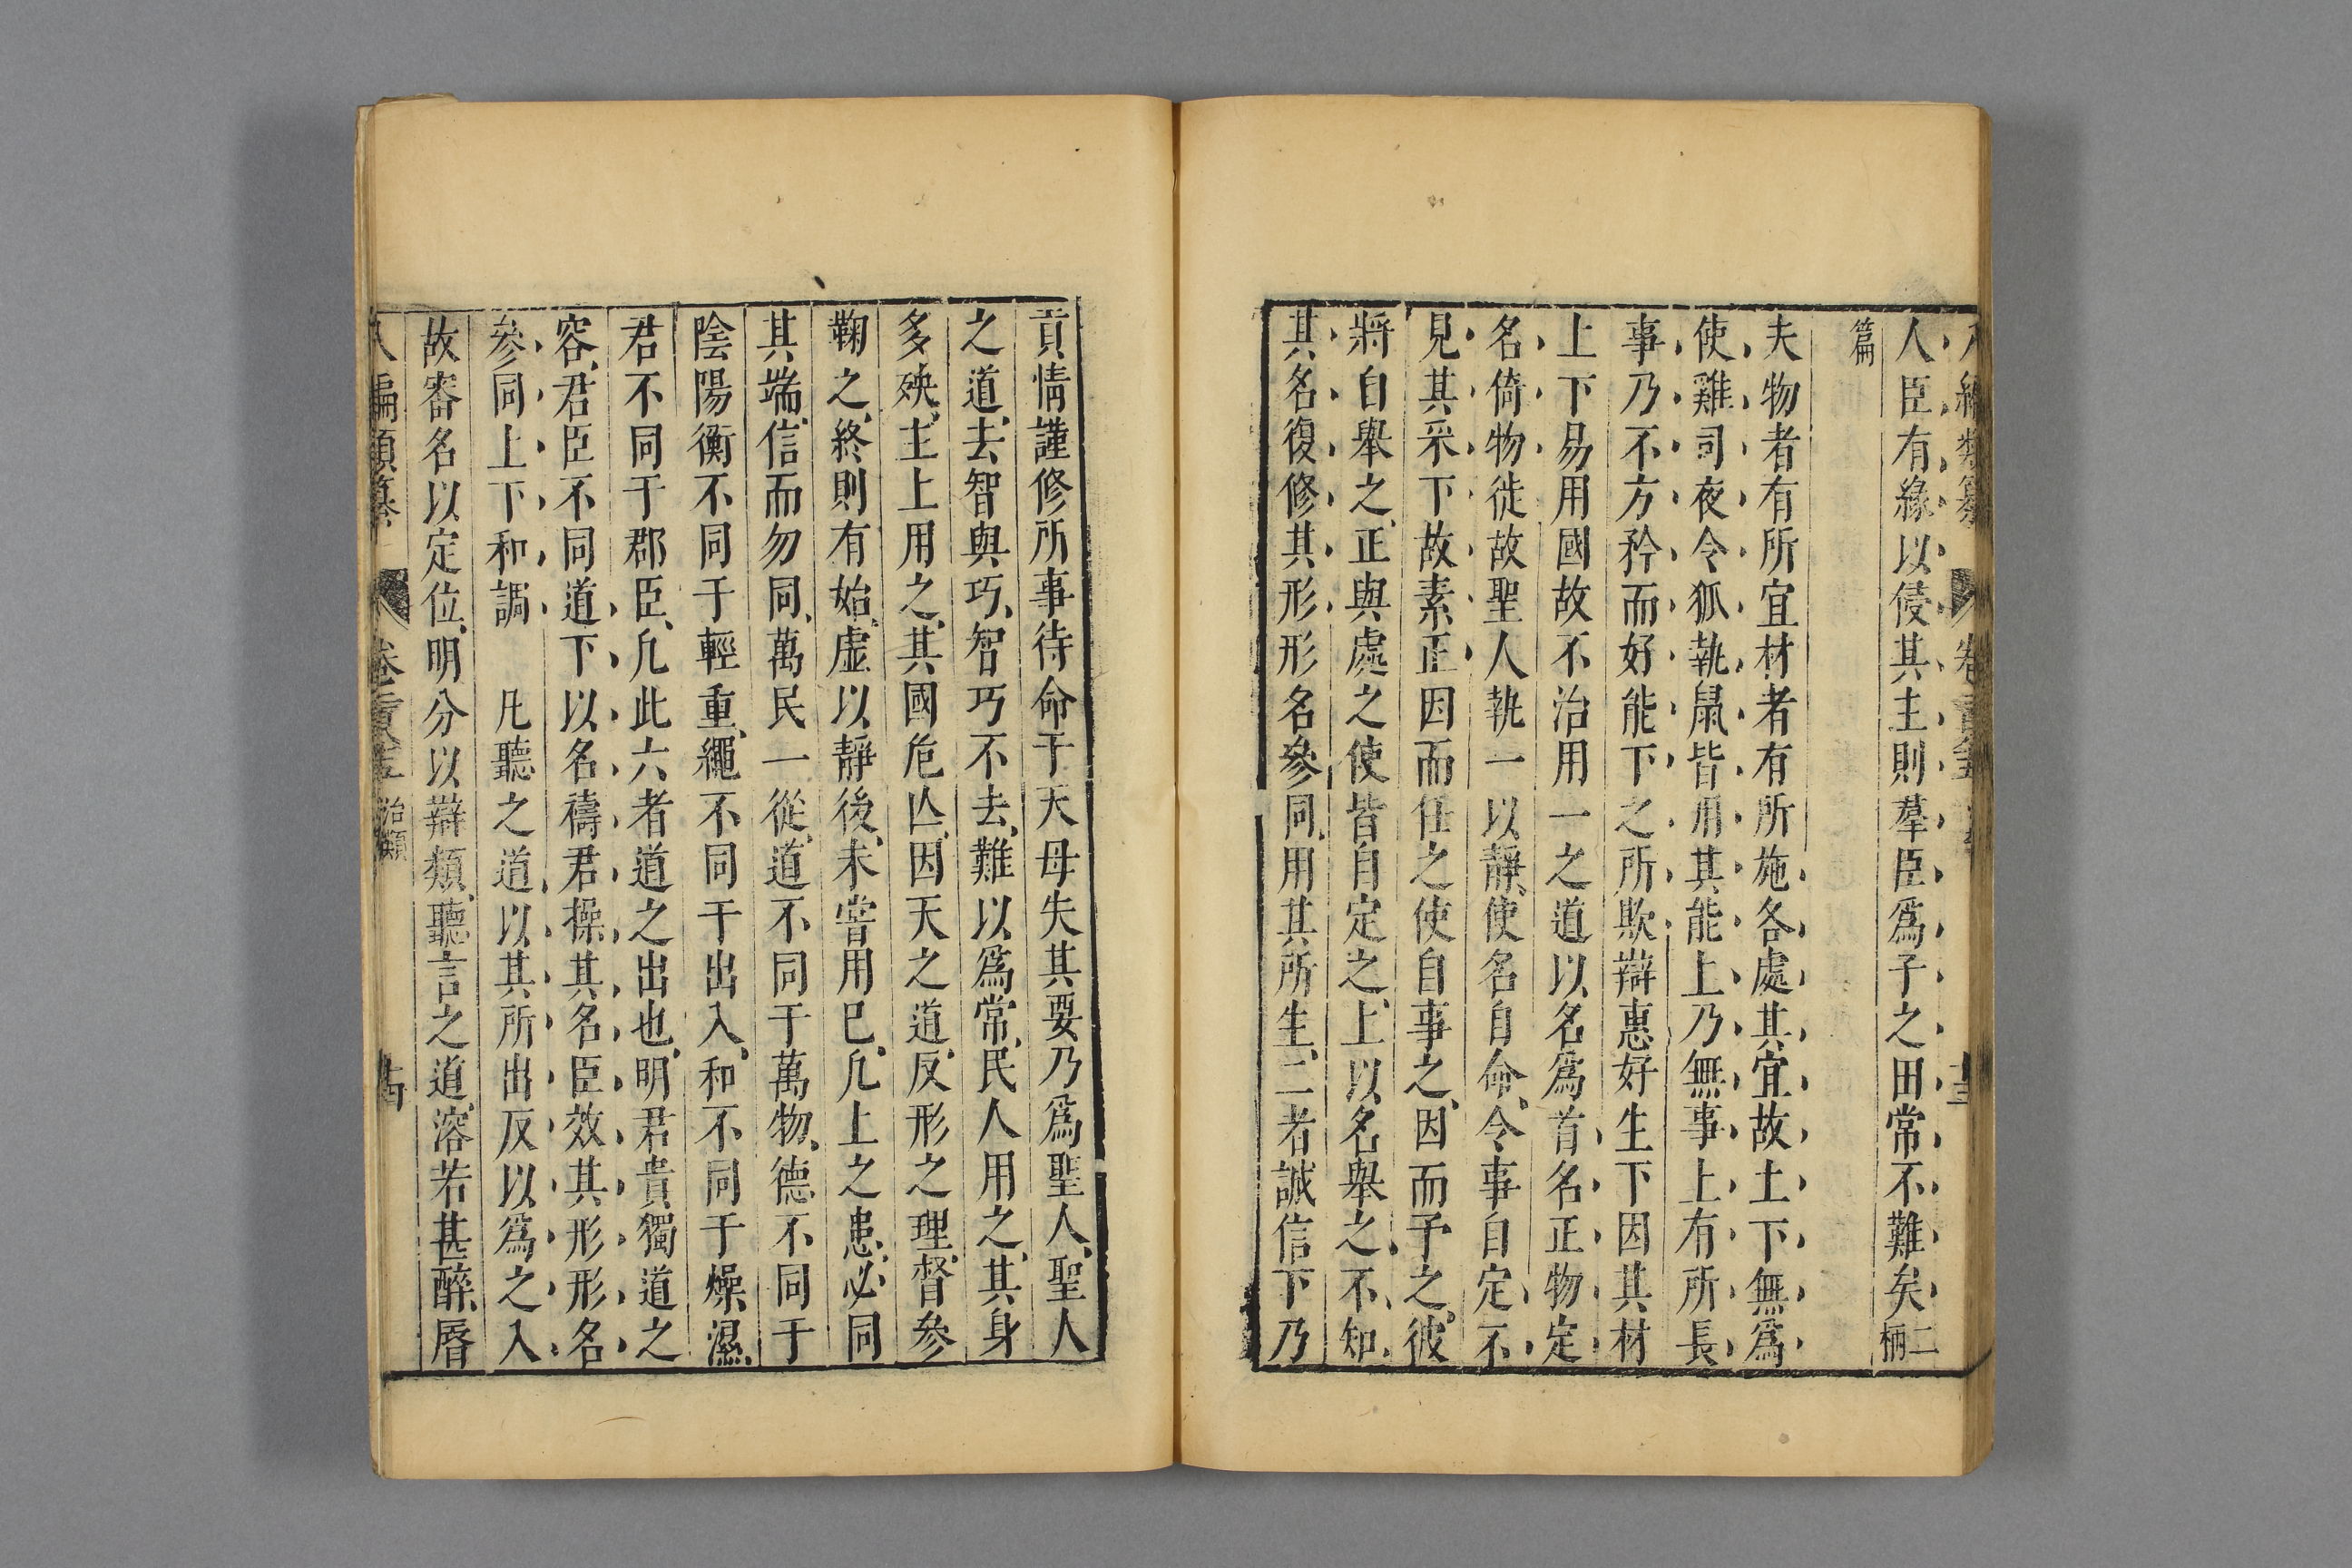 人臣有緣以侵其主則羣臣爲子之田常不難矣二柄
篇
夫物者有所宜材者有所施各處其宜故土下無爲
使雞司夜令狐執鼠皆用其能上乃無事上有所長
事乃不方矜而好能下之所欺辯惠好生下因其材
上下易用國故不治用一之道以名爲首名正物定
名倚物徙故聖人執一以靜使名自命令事自定不
見其采下故素正因而任之使自事之因而予之彼
將自舉之正與處之使皆自定之上以名舉之不知
其名復修其形形名參同用其所生二者誠信下乃
貢情謹修所事待命于天毋失其要乃爲聖人聖人
之道去智與巧智巧不去難以爲常民人用之其身
多殃主上用之其國危亾因天之道反形之理督參
鞠之終則有始虛以靜後未嘗用已凢上之患必同
其端信而勿同萬民一從道不同于萬物德不同于
陰陽衡不同于輕重繩不同于出入和不同于燥濕
君不同于郡臣凢此六者道之出也明君貴獨道之
容君臣不同道下以名禱君操其名臣效其形形名
參同上下和調　凡聽之道以其所出反以爲之入
故審名以定位明分以辯類聽言之道溶若甚醉脣
治類
十四